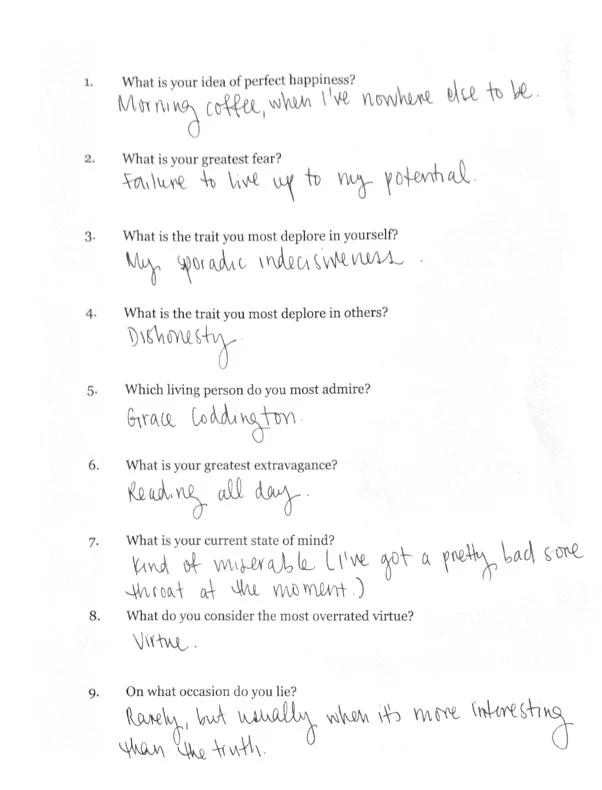 1. What is your idea of perfect happiness?
Morning coffee, when I've nowhere else to be.
2. What is your greatest fear?
Failure to live up to my potential.
3. What is the trait you most deplore in yourself?
My sporadic indecisiveness.
4. What is the trait you most deplore in others?
Dishonesty.
5. Which living person do you most admire?
Grace Coddington.
6. What is your greatest extravagance?
Reading all day.
7. What is your current state of mind?
Kind of miserable (I've got a pretty bad sore
throat at the moment.)
8. What do you consider the most overrated virtue?
Virtue.
9. On what occasion do you lie?
Rarely, but usually when it's more interesting
than the truth.